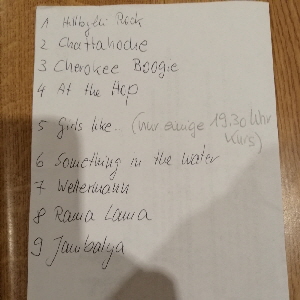 1 Hillbilly Rock
2 Chattahochie
3 Cherokee Boogie
4 At the Hop
5 Girls like.. (nur einige 19.30 Uhr
Kurs)
6 Something in the water
7 Wellermann
8 Rama Lama
9 Jambalya